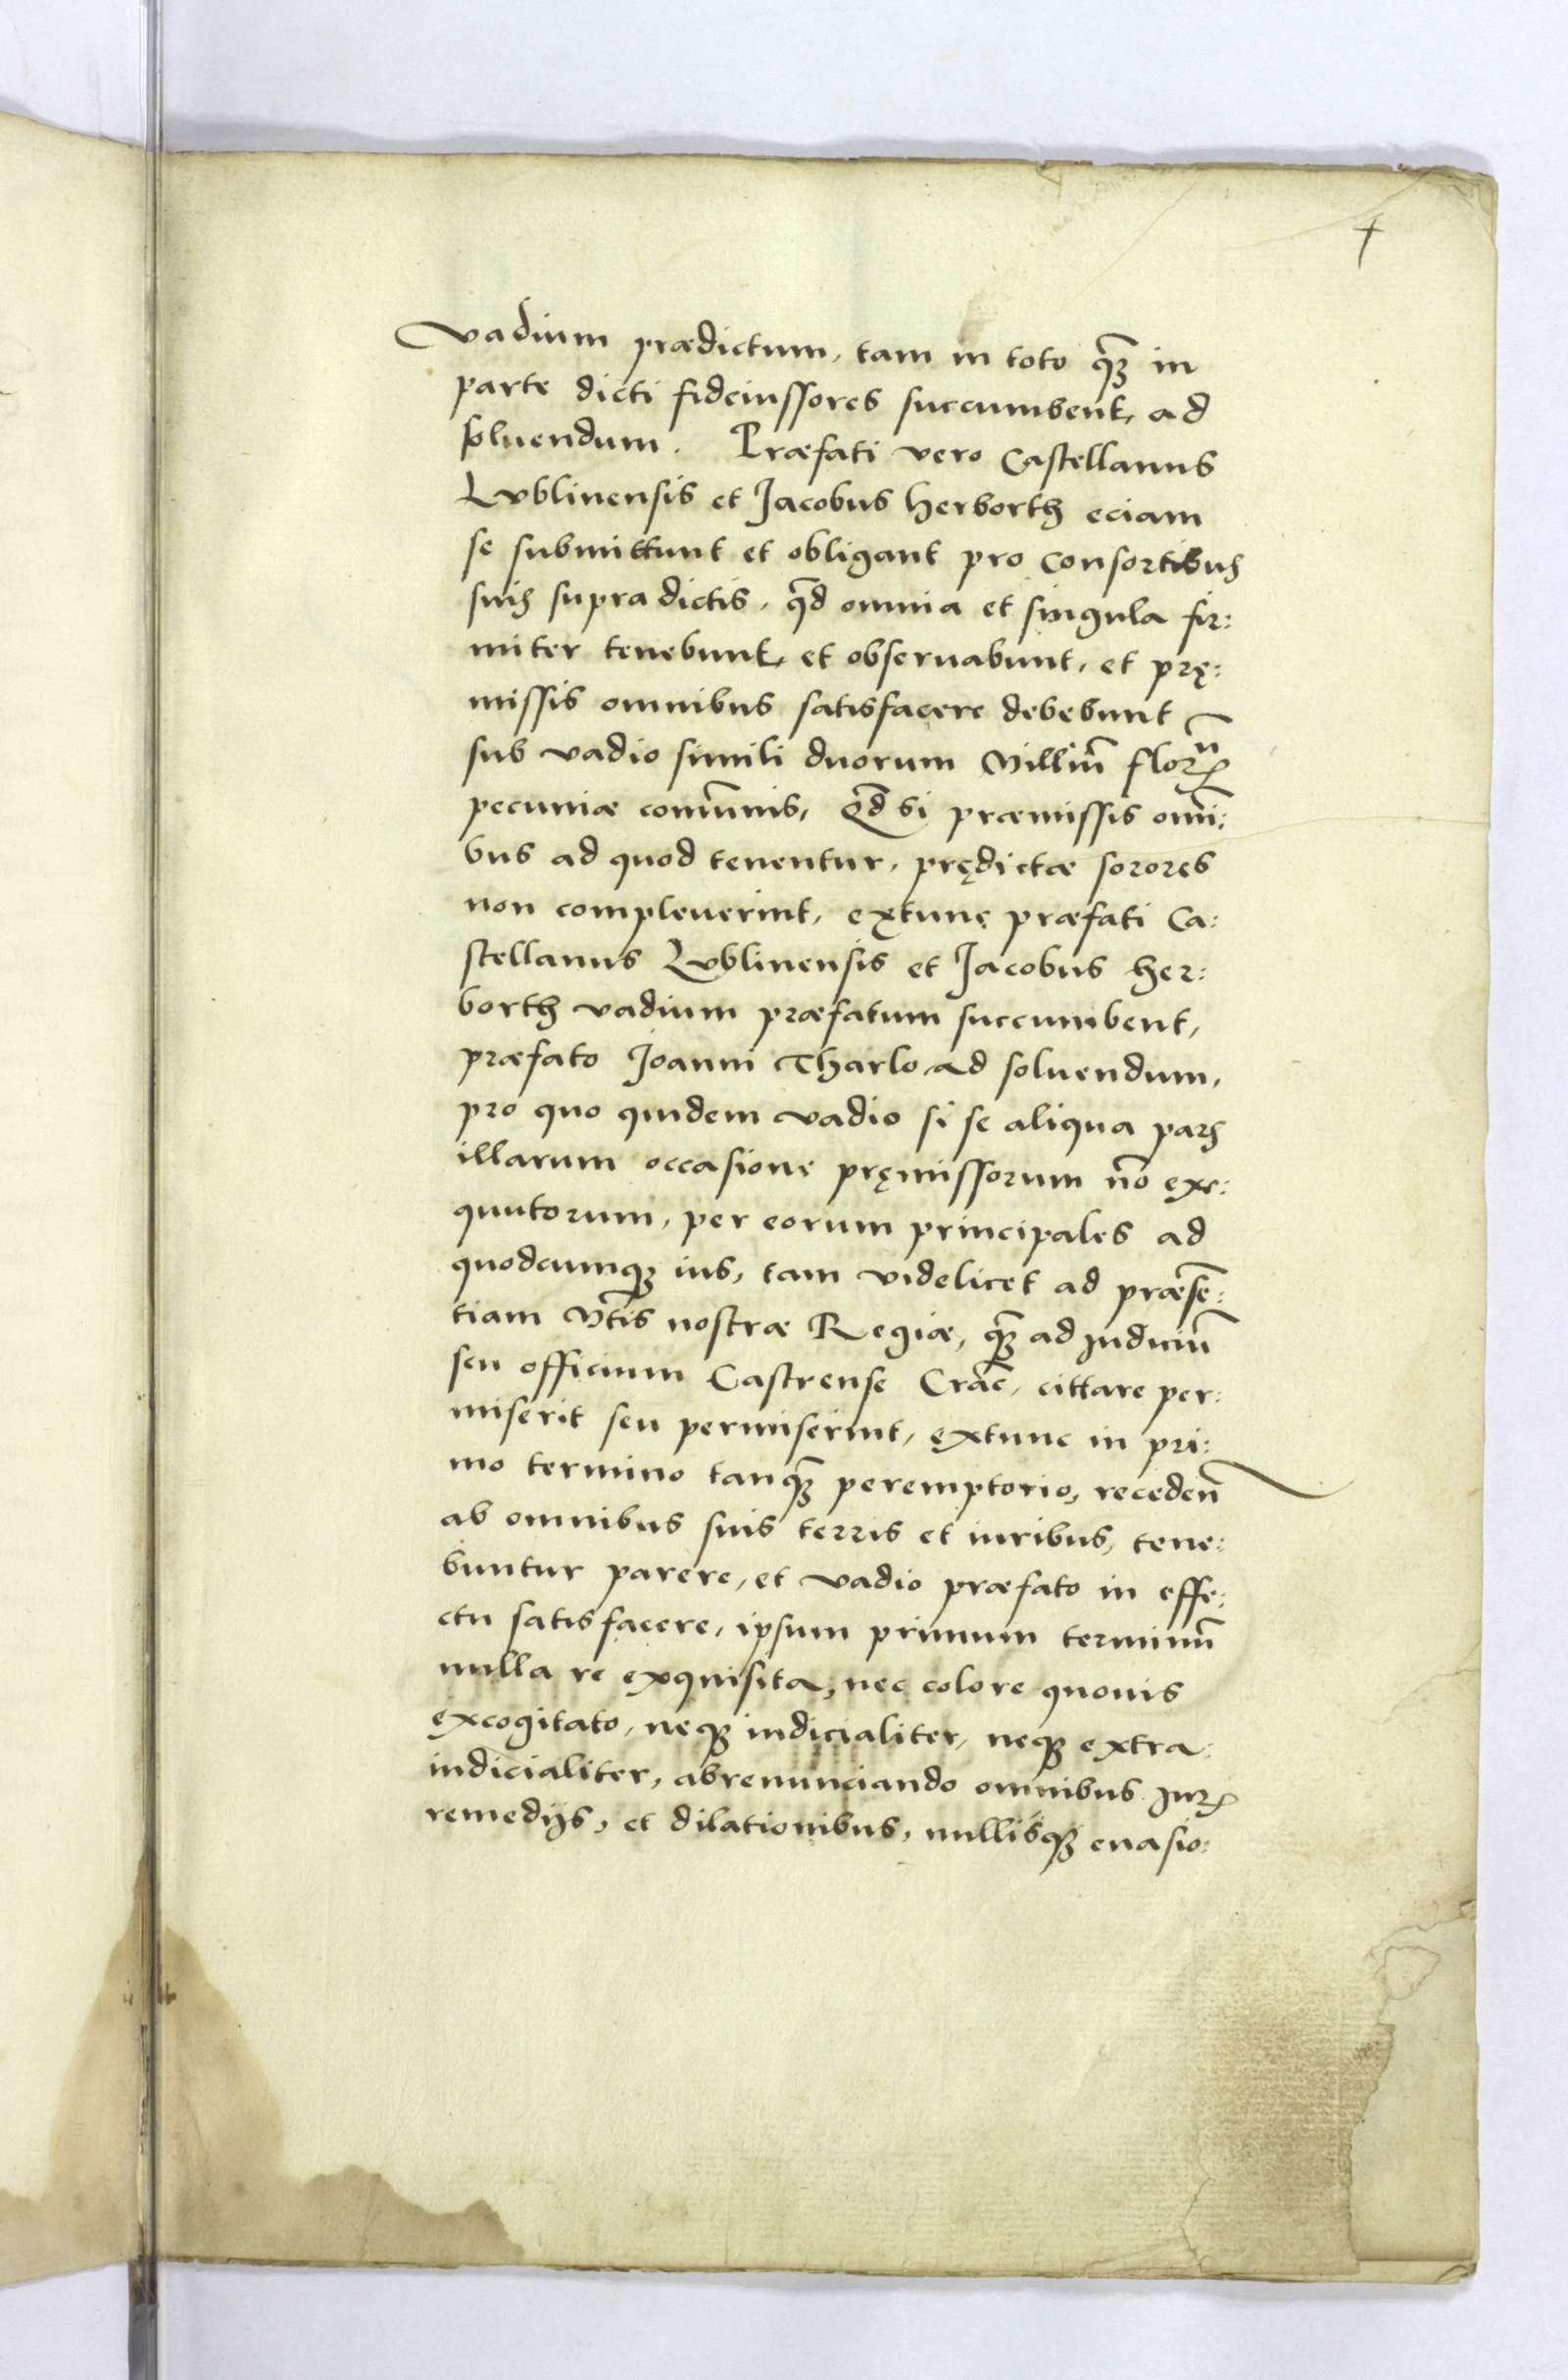 Vadium prædictum, tam in toto q̃ꝫ in
parte dicti fideiussores succumbent, ad
soluendum. Præfati vero Castellanus
Lublinensis et Jacobus Herborth eciam
se submittunt et obligant pro consortibus
suis supra dictis, q̃d omnia et singula fir:
miter tenebunt, et obseruabunt, et prę:
missis omnibus satisfacere debebunt
sub vadio simili duorum Milliũ florꝝ̃
pecuniæ com̃unis, Q̃d si præmissis om̃i:
bus ad quod tenentur, prędictæ sorores
non compleuerint, extunc præfati Ca:
stellanus Lublinensis et Jacobus Her:
borth vadium præfatum succumbent,
præfato Joanni Tharlo ad soluendum,
pro quo quidem vadio si se aliqua pars
illarum occasione pręmissorum nõ exe:
quutorum, per eorum principales ad
quodcumqꝫ ius, tam videlicet ad præsẽ:
tiam Mtĩs nostræ Regiæ, q̃ꝫ ad Judiciũ
seu officium Castrense Crac̃, cittare per:
miserit seu permiserint, extunc in pri:
mo termino tanq̃ꝫ peremptorio, recedeñ
ab omnibus suis terris et iuribus, tene:
buntur parere, et vadio præfato in effe:
ctu satisfacere, ipsum primum terminũ
nulla re exquisita, nec colore quouis
excogitato, neqꝫ iudicialiter, neqꝫ extra:
iudicialiter, abrenunciando omnibus Jurꝭ
remedijs, et dilationibus, nullisqꝫ euasio: